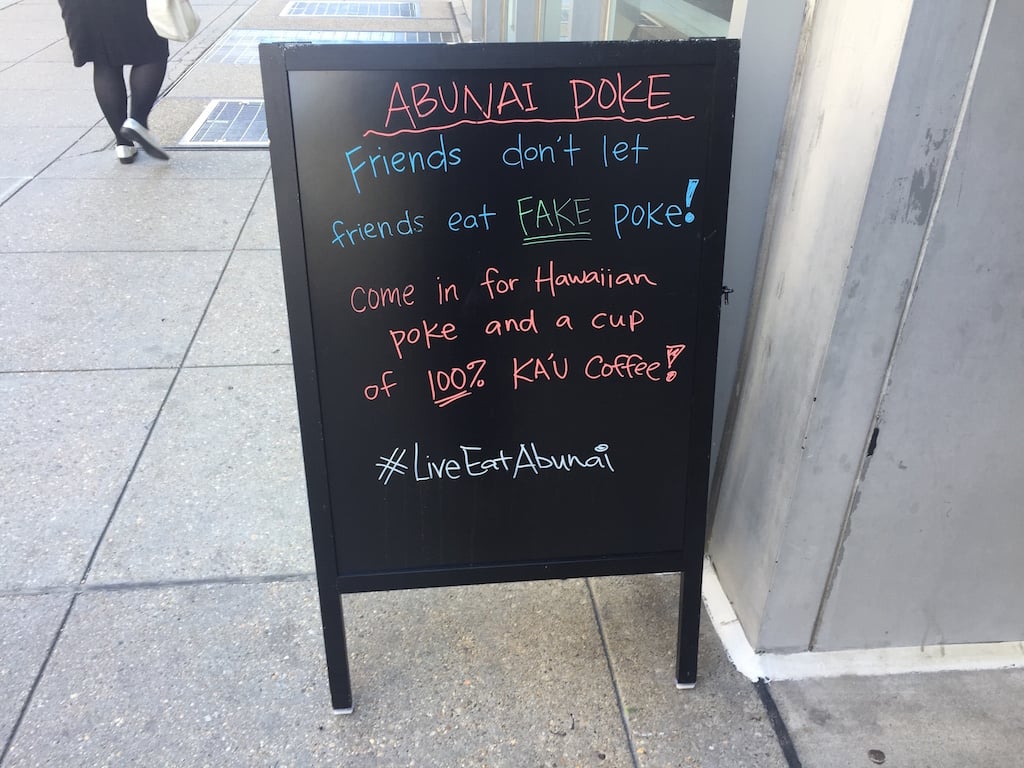 ABUNAI POKE
Friends don't let
friends eat FAKE poke!
Come in for Hawaiian
poke and a cup
of 100% KA'U Coffee!
#LiveEatAbunai